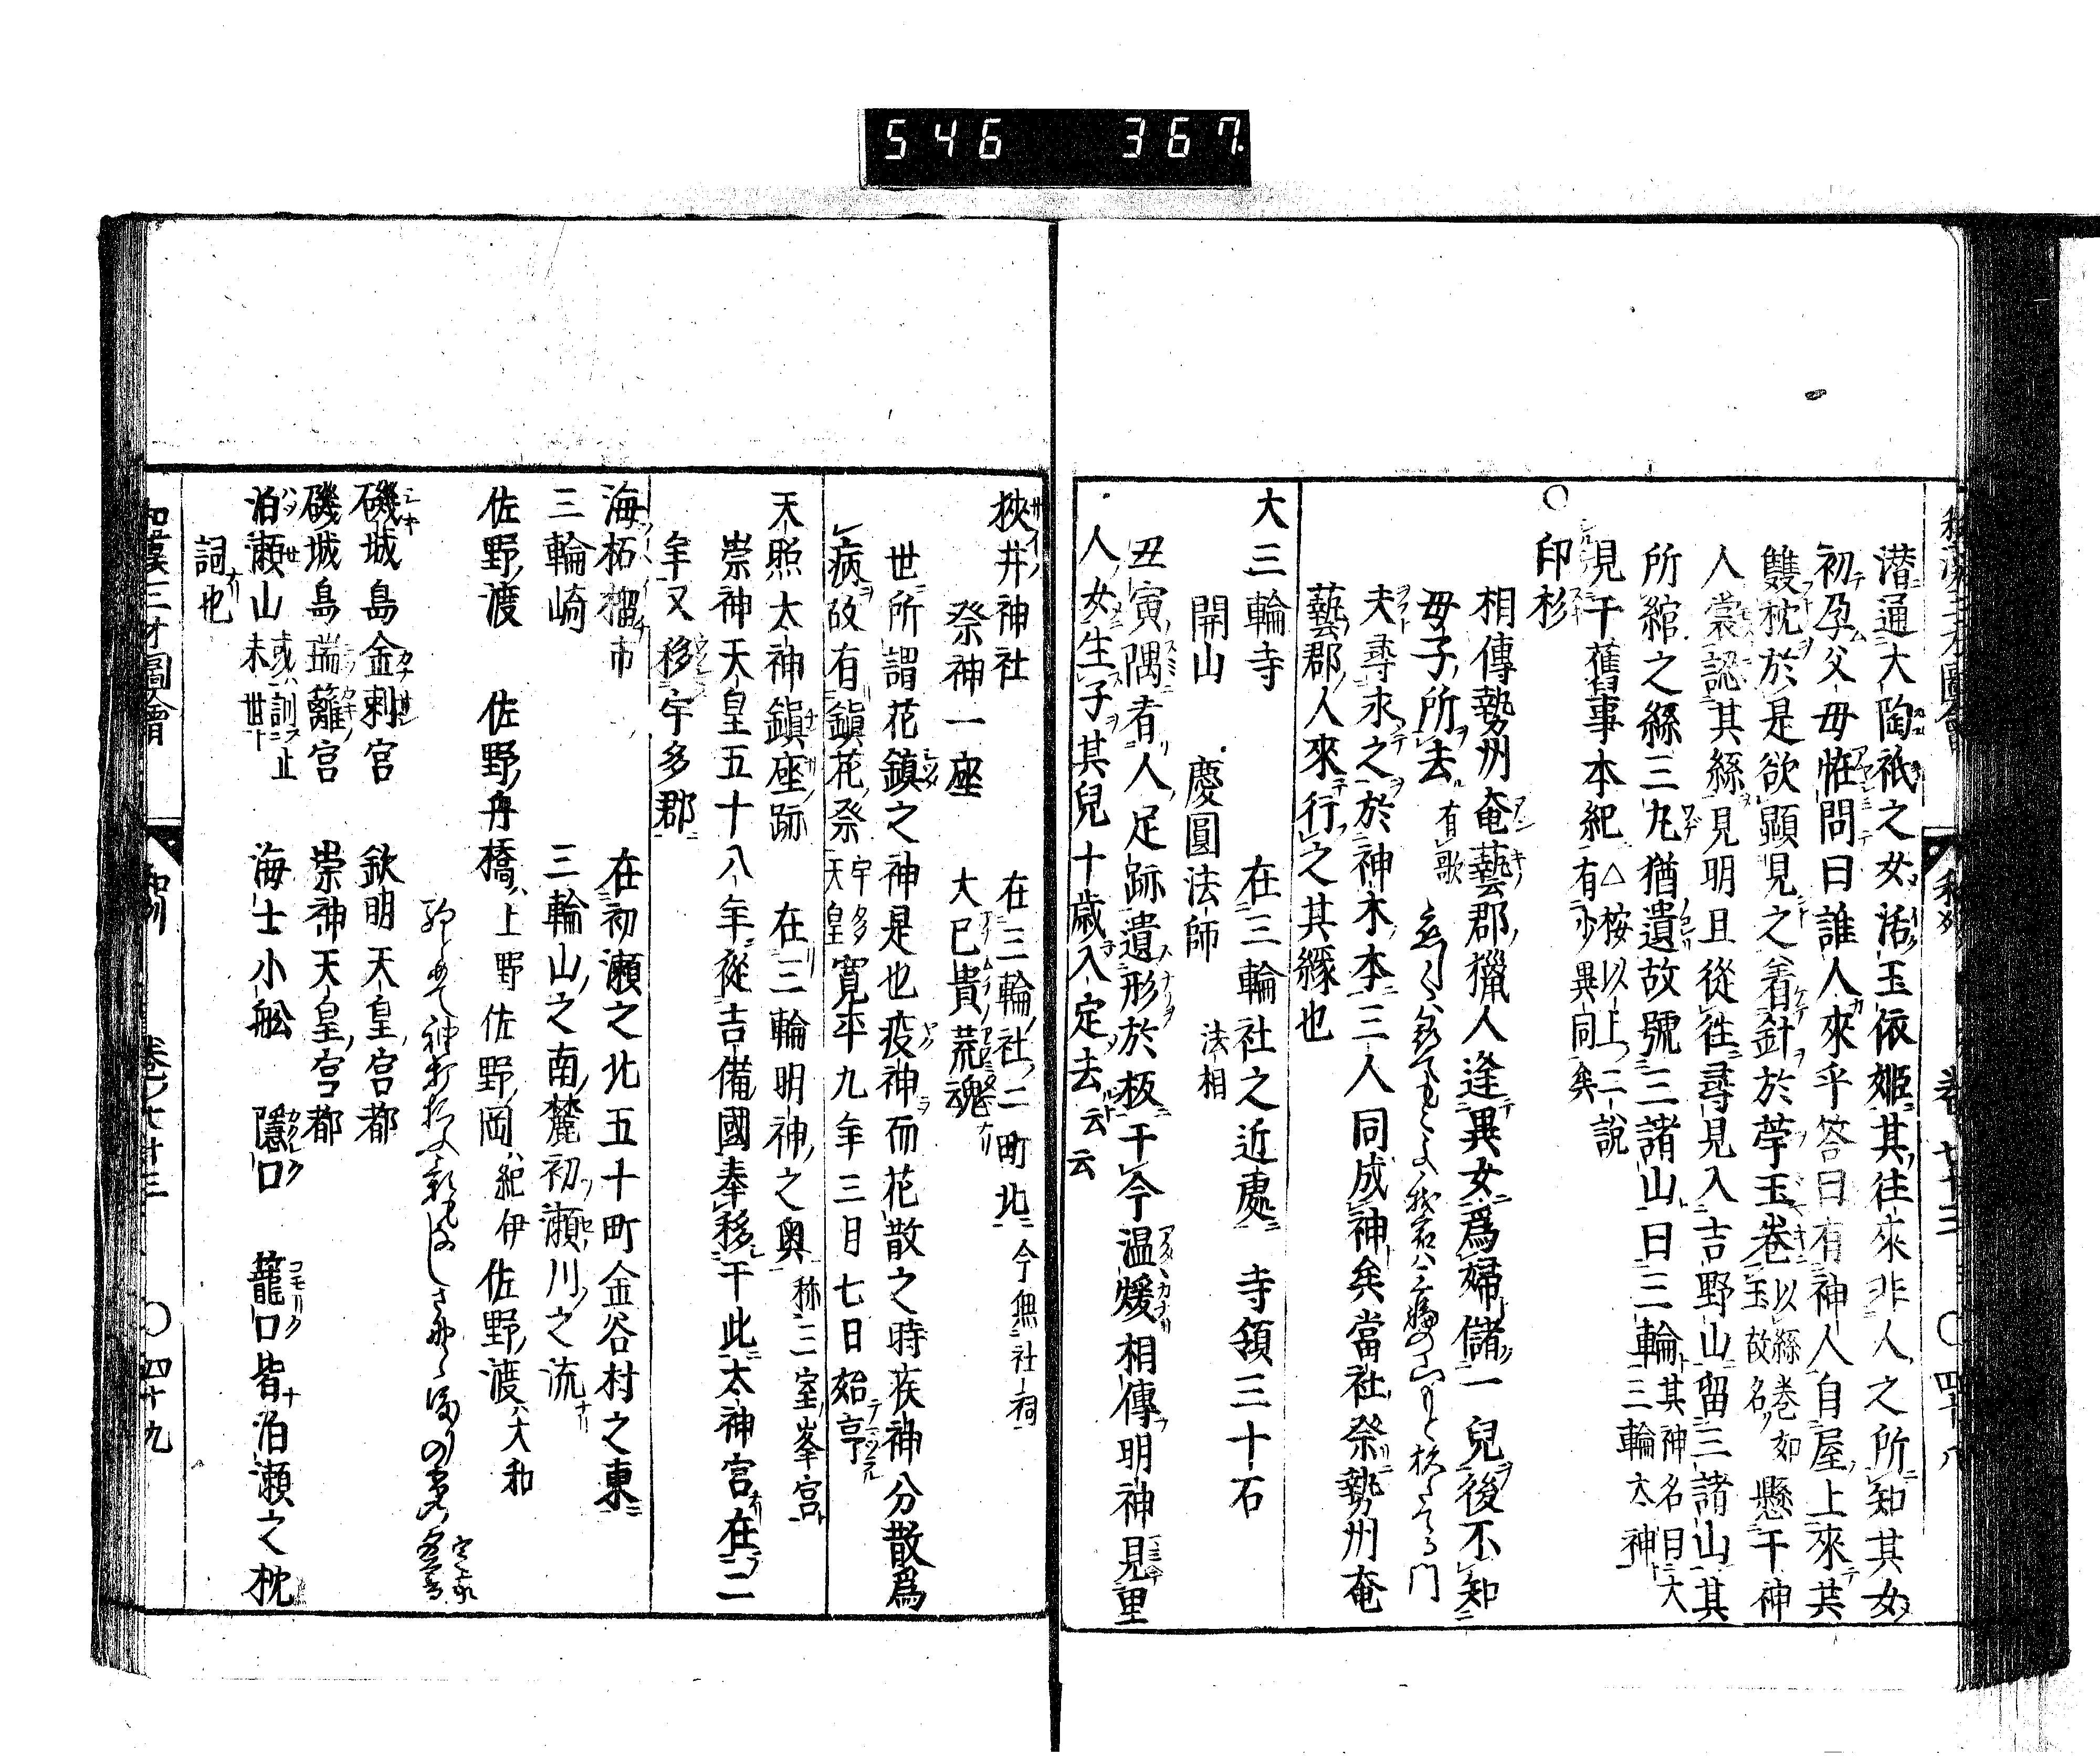 546 367
潜通大陶祇之女活玉依姬其徃來非人之所知其女
初孕父母恠問曰誰人來乎答曰有神人自屋上來其
雙枕於是欲顯見之着針於苧玉卷以絲卷如玉故名懸于神
人裳認其絲見明旦從徃尋見入吉野山留三諸山其
所綰之絲三丸猶遺故號三諸山曰三輪其神名曰大三輪大神
見于舊事本紀△按以上二說有少異同矣
○印杉
相傳勢州奄藝郡獵人逢異女爲婦儲一兒後不知
母子所去有歌
夫尋求之於神木本三人同成神矣當社祭勢州奄
藝郡人來行之其縁也
大三輪寺 在三輪社之近處 寺領三十石
開山 慶圓法師 法相
丑寅隅者人足跡遺形於板于今温煖相傳明神見里
人女生子其兒十歳入定去云云
狹井神社 在三輪社二町北今無社祠
祭神一座 大已貴荒魂
世所謂花鎮之神是也疫神而花散之時疾神分散爲
病故有鎮花祭宇多天皇寛平九年三月七日始亨
天照太神鎮座跡 在三輪明神之奥称三室峯宮
崇神天皇五十八年從吉備國奉移于此太神宮在二
年又移宇多郡
海柘榴市 在初瀬之北五十町金谷村之東
三輪崎 三輪山之南麓初瀬川之流
佐野渡 佐野舟橋ハ上野佐野岡ハ紀伊佐野渡ハ大和
磯城島金刺宮 欽明天皇宮都
磯城島瑞籬宮 崇神天皇宮都
泊瀬山或訓止未世 海士小舩 隱口 籠口皆泊瀬之枕
詞也
和漢三才圖會 和州 卷ノ七十三 ○四十九